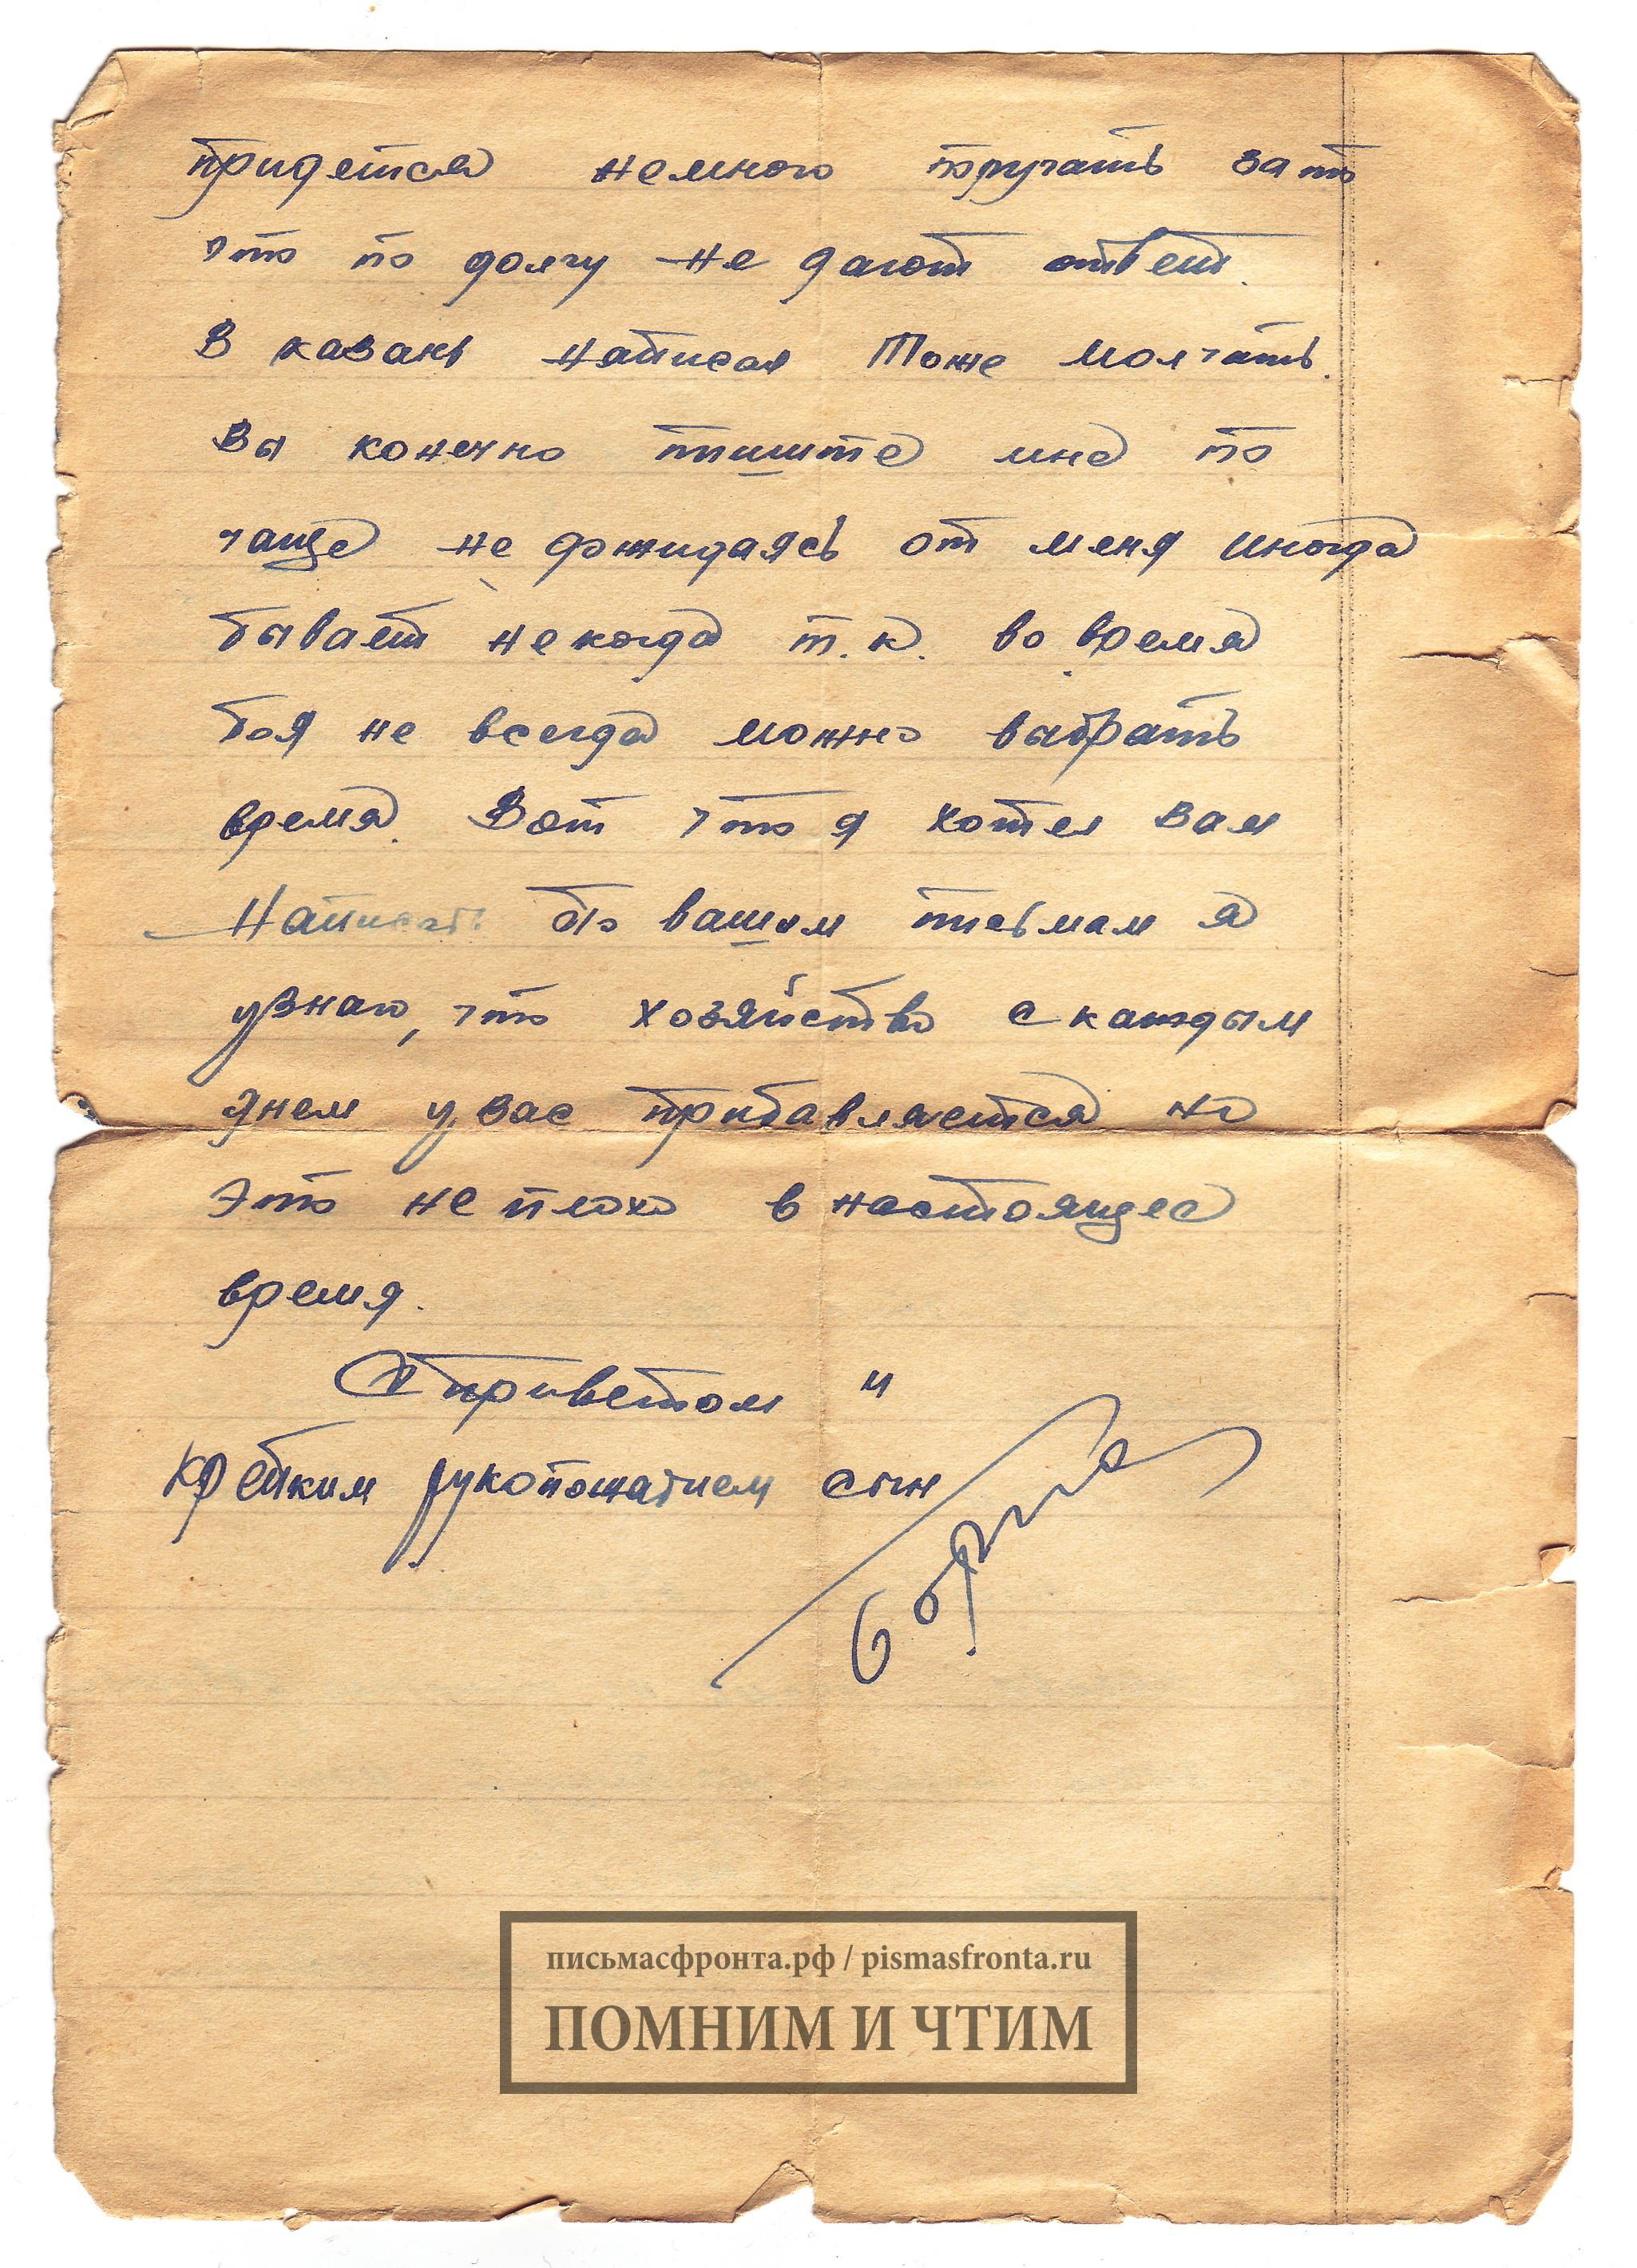 придется немного поругать за то
что по долгу не дают ответ.
В казань написал Тоже молчать.
Вы конечно пишите мне по
чаще не дожидаясь от меня иногда
бывает некогда т.к. во время
боя не всегда можно выбрать
время. Вот что я хотел вам
Написать По вашим письмам я
узнаю, что хозяйство с каждым
днем у вас прибавляется но
это не плохо в настоящее
время.
С приветом и
крепким рукопожатием сын
Борис
письмасфронта.рф / pismasfronta.ru
ПОМНИМ И ЧТИМ